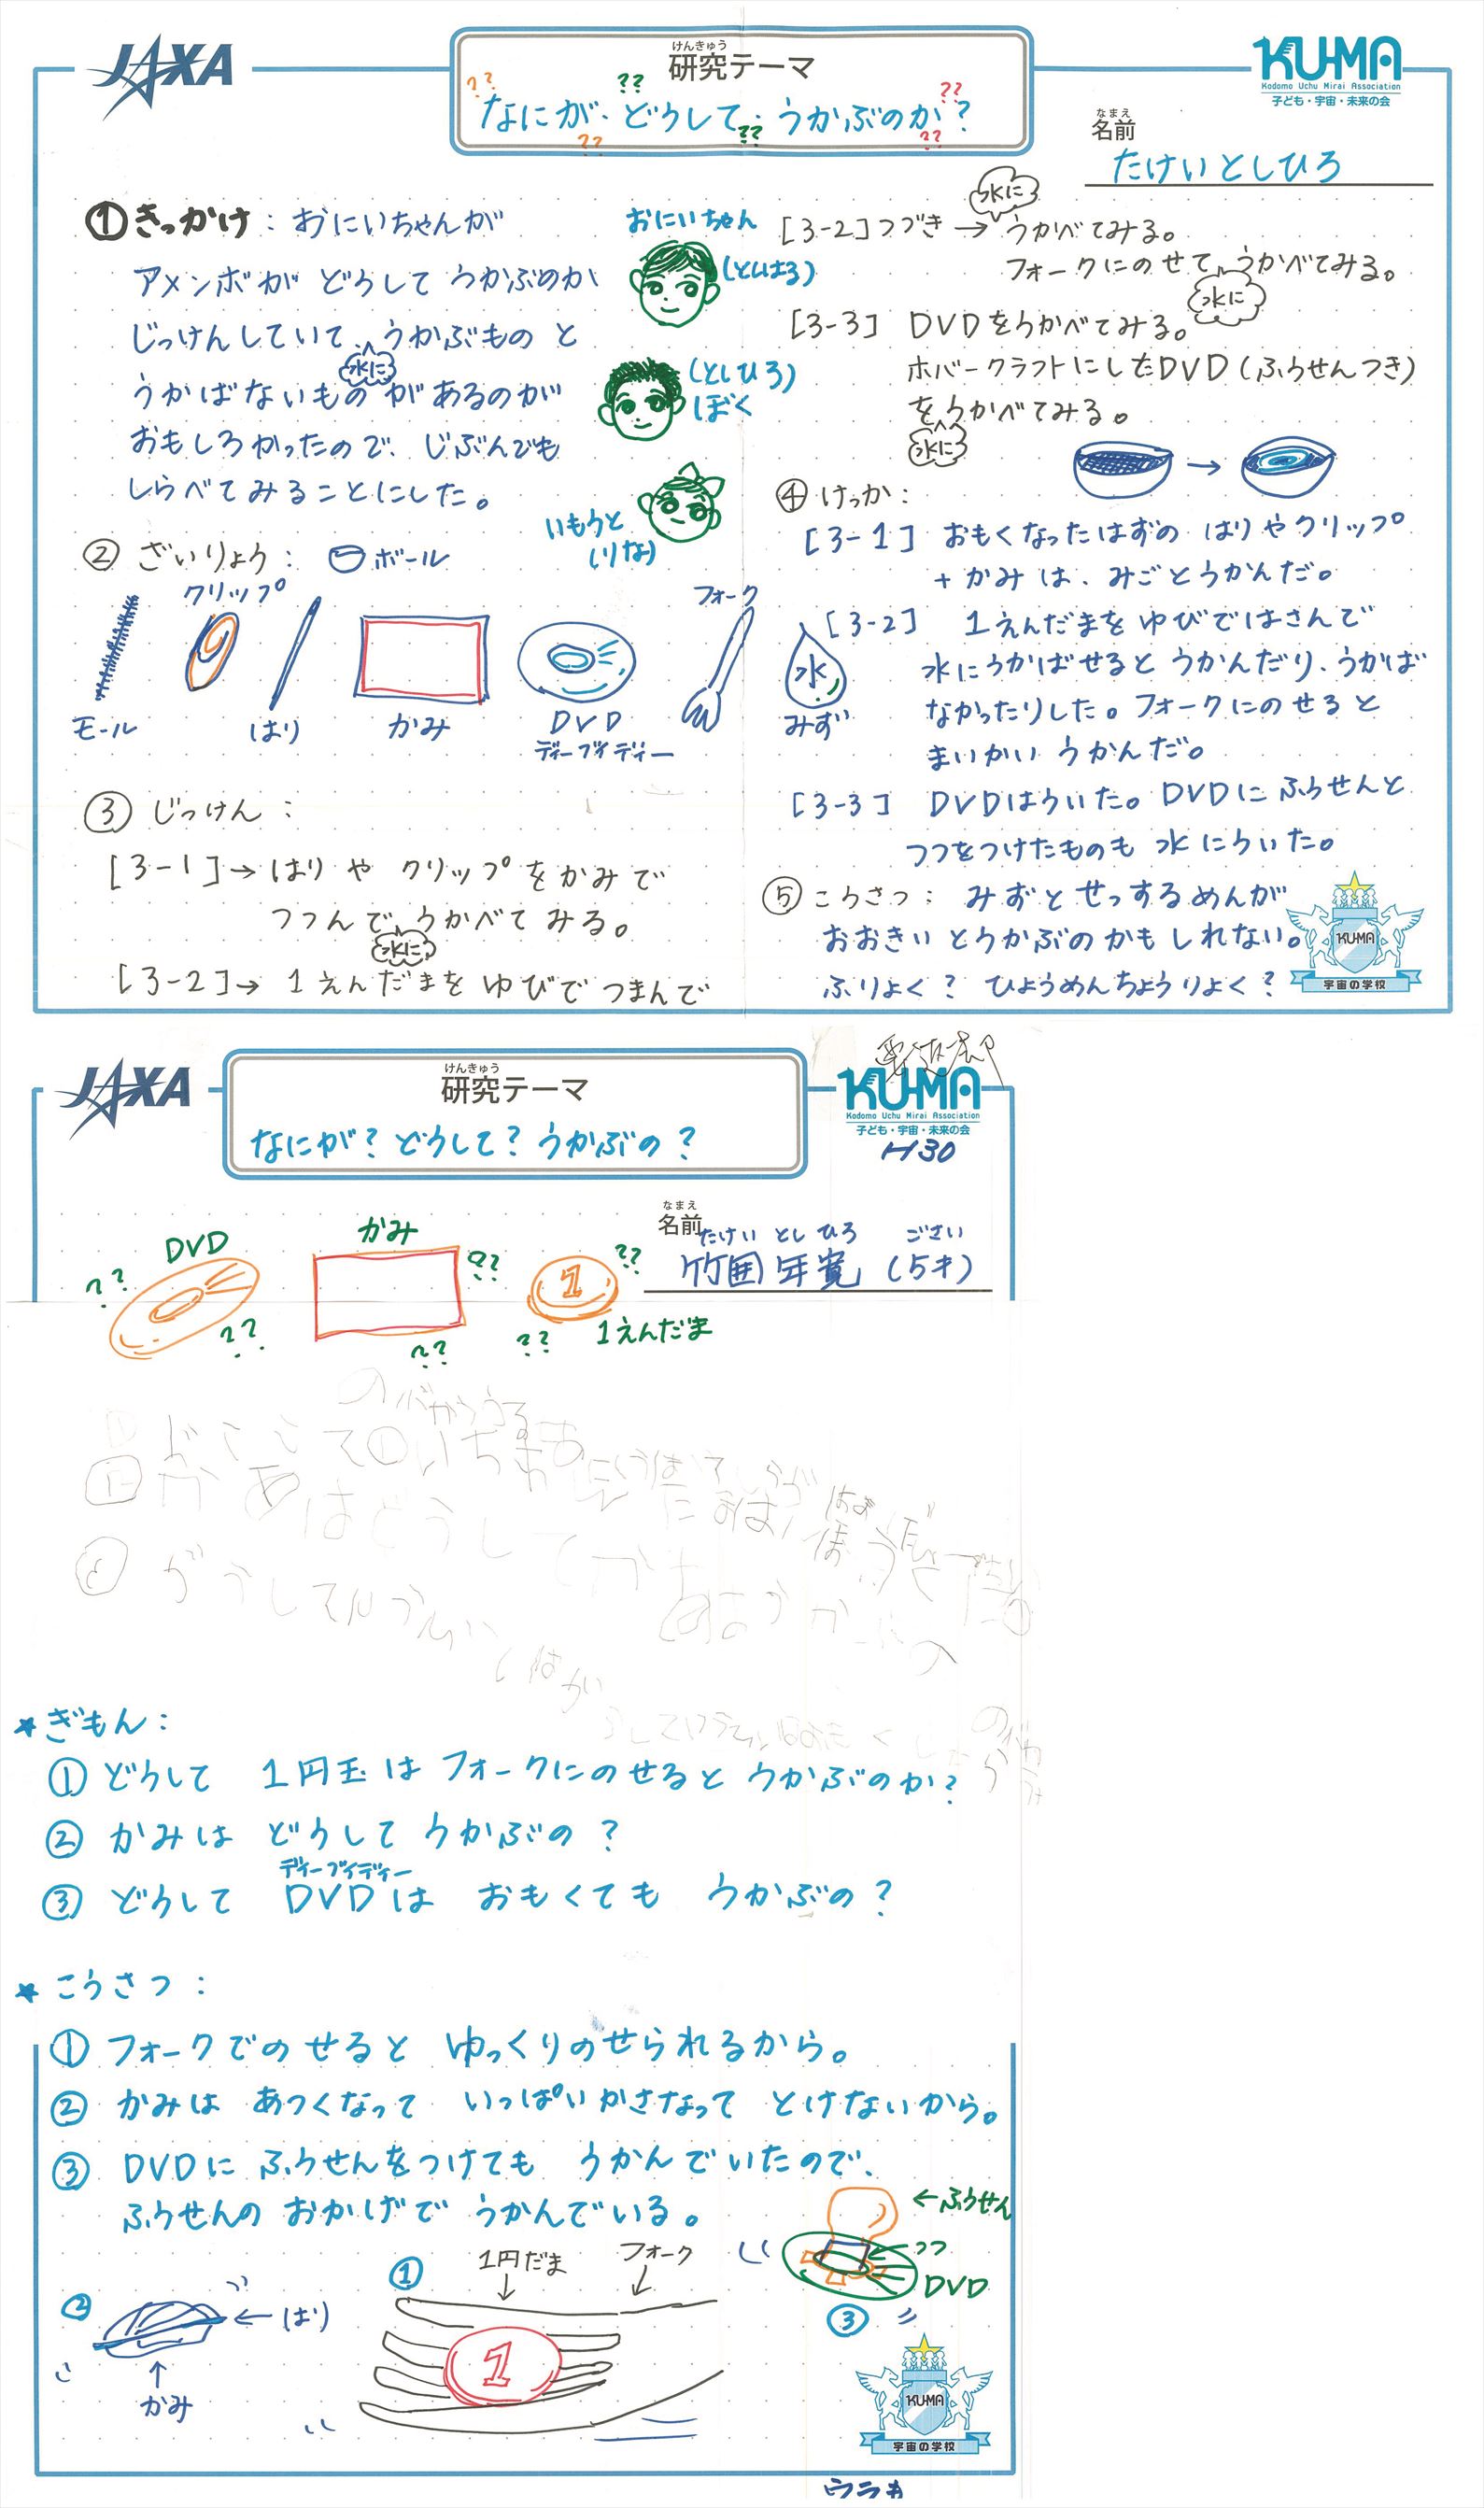 JAXA
けんきゅう
研究テーマ
なにが、どうして、うかぶのか?
KU-MA
Kodomo Uchu Mirai Association
子ども・宇宙・未来の会
なまえ
名前
たけいとしひろ
①きっかけ:おにいちゃんが
アメンボが どうして うかぶのか
じっけんしていて、水にうかぶもの と
うかばないもの があるのが
おもしろかったので、じぶんでも
しらべてみることにした。
おにいちゃん
(としはる)
(としひろ)
ぼく
いもうと
(りな)
② ざいりょう: ボール
クリップ
フォーク
モール
はり
かみ
DVD
ディーブイディー
水
みず
③ じっけん:
[3-1]→はりや クリップをかみで
つつんで、水にうかべてみる。
[3-2]→ 1えんだまを ゆびで つまんで
[3-2]つづき→水にうかべてみる。
フォークにのせて、水にうかべてみる。
[3-3] DVDをうかべてみる。
ホバークラフトにしたDVD(ふうせんつき)
を水にうかべてみる。
④ けっか:
[3-1] おもくなったはずの はりやクリップ
+かみは、みごとうかんだ。
[3-2] 1えんだまを ゆびではさんで
水にうかばせると うかんだり、うかば
なかったりした。フォークにのせると
まいかい うかんだ。
[3-3] DVDはういた。DVDに ふうせんと
つつをつけたものも 水にういた。
⑤ こうさつ: みずと せっするめんが
おおきい とうかぶのかもしれない。
ふりょく? ひょうめんちょうりょく?
KU-MA
宇宙の学校
JAXA
けんきゅう
研究テーマ
なにが?どうして?うかぶの?
KU-MA
Kodomo Uchu Mirai Association
子ども・宇宙・未来の会
H30
なまえ
名前
たけい とし ひろ ごさい
竹囲 年寛 (5才)
DVD
かみ
1
1えんだま
★ぎもん:
① どうして 1円玉は フォークにのせると うかぶのか?
② かみは どうして うかぶの?
ディーブイディー
③ どうして DVDは おもくても うかぶの?
★こうさつ:
① フォークでのせると ゆっくりのせられるから。
② かみは あつくなって いっぱいかさなって とけないから。
③ DVDに ふうせんをつけても うかんでいたので、
ふうせんの おかげで うかんでいる。
←ふうせん
??
DVD
③
① 1円だま フォーク
1
② ←はり
かみ
KU-MA
宇宙の学校